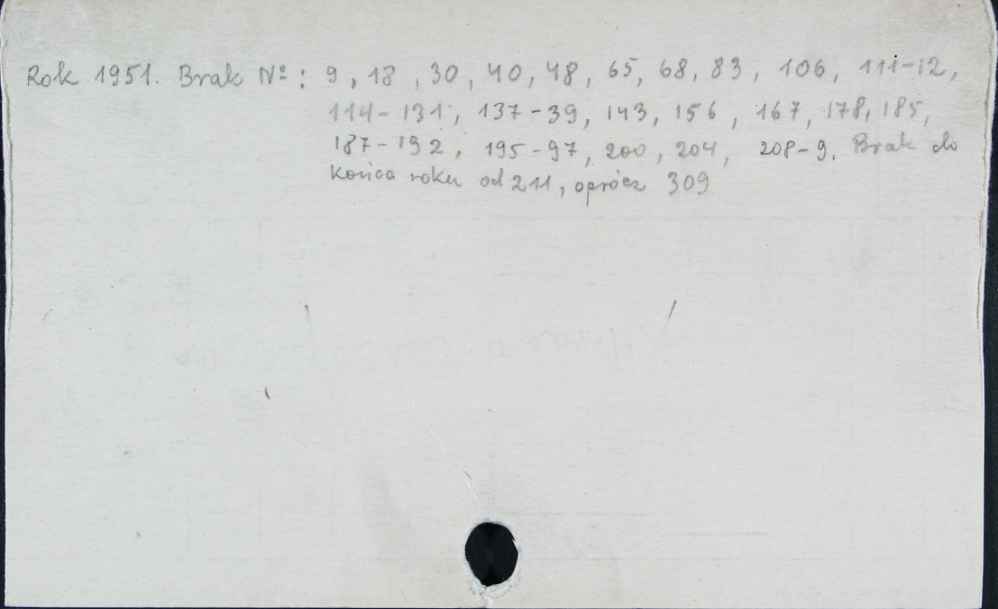 Rok 1951. Brak Nº: 9, 18, 30, 40, 48, 65, 68, 83, 106, 111-12,
114-131, 137-39, 143, 156, 167, 178, 185,
187-192, 195-97, 200, 204, 208-9. Brak do
końca roku od 211, oprócz 309